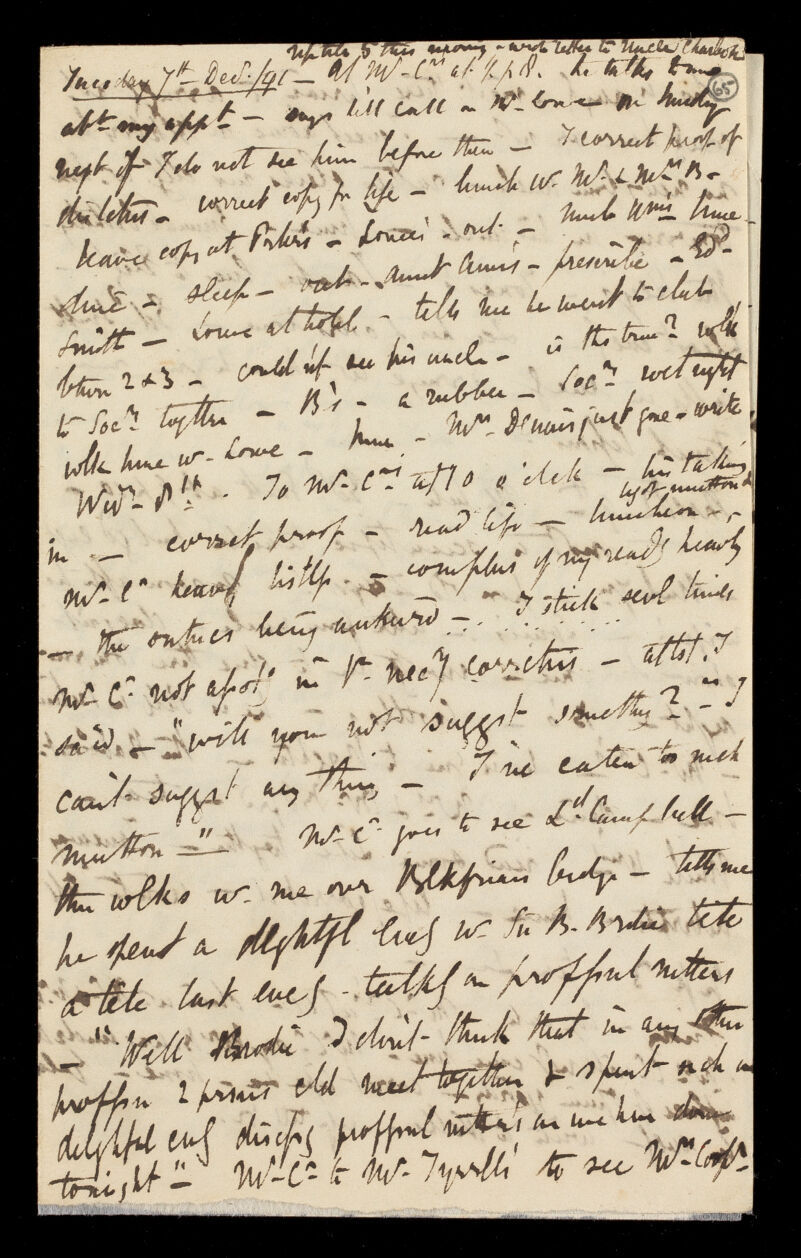 up till 5 this morning - wrote letter to Uncle Charles
Tuesday 7th Decr./41 - At Mr. C's at ½ p 8. he talks to me
65
abt my appt - says I'll call on Mr. Lowe on Sunday
next if I do not see him before then - I correct proof of
- correct copy for life - lunch w. Mr. & Mrs. B -
leave copy at - Lowe's - out - home -
dine - sleep - out - aunt - prescribe - Edd
Smith - Lowe at hotel - tells me he went to club
betwn 2 & 3 - could n't see his uncle - is this true? walk
to Socy together - B's - a rubber - Socy wet night
walk home w. Lowe - home - Mrs. Dennis just gone - write
Wedy 8th. To Mr. C's at 10 o'clck - his taking
in - correct proof - read life - luncheon - hot mutton &
Mr. C. - complns of my readg heavily
- the being awkward - I stick sevl times
Mr. C. not in necy corrections - at last I
said - "will you not suggst somethg?" - "I
can't suggst any thing - I've eaten too mch
mutton -" Mr. C. goes to see Ld. Campbell -
then walks w. me over Blkfriars bridge - tells me
he spent a dlghtfl eveg w. Sir B. Brodie tete
a tete last eveg - talkg on proffsnl mtters
- "Well Brodie I don't think that in any other
proffsn 2 prsns cld meet together & spent such a
delghtful eveg discssg proffsnl mtters as we have done
tonight" - Mr. C. to Mr. Tyrrell's to see Mrs. Coopr -